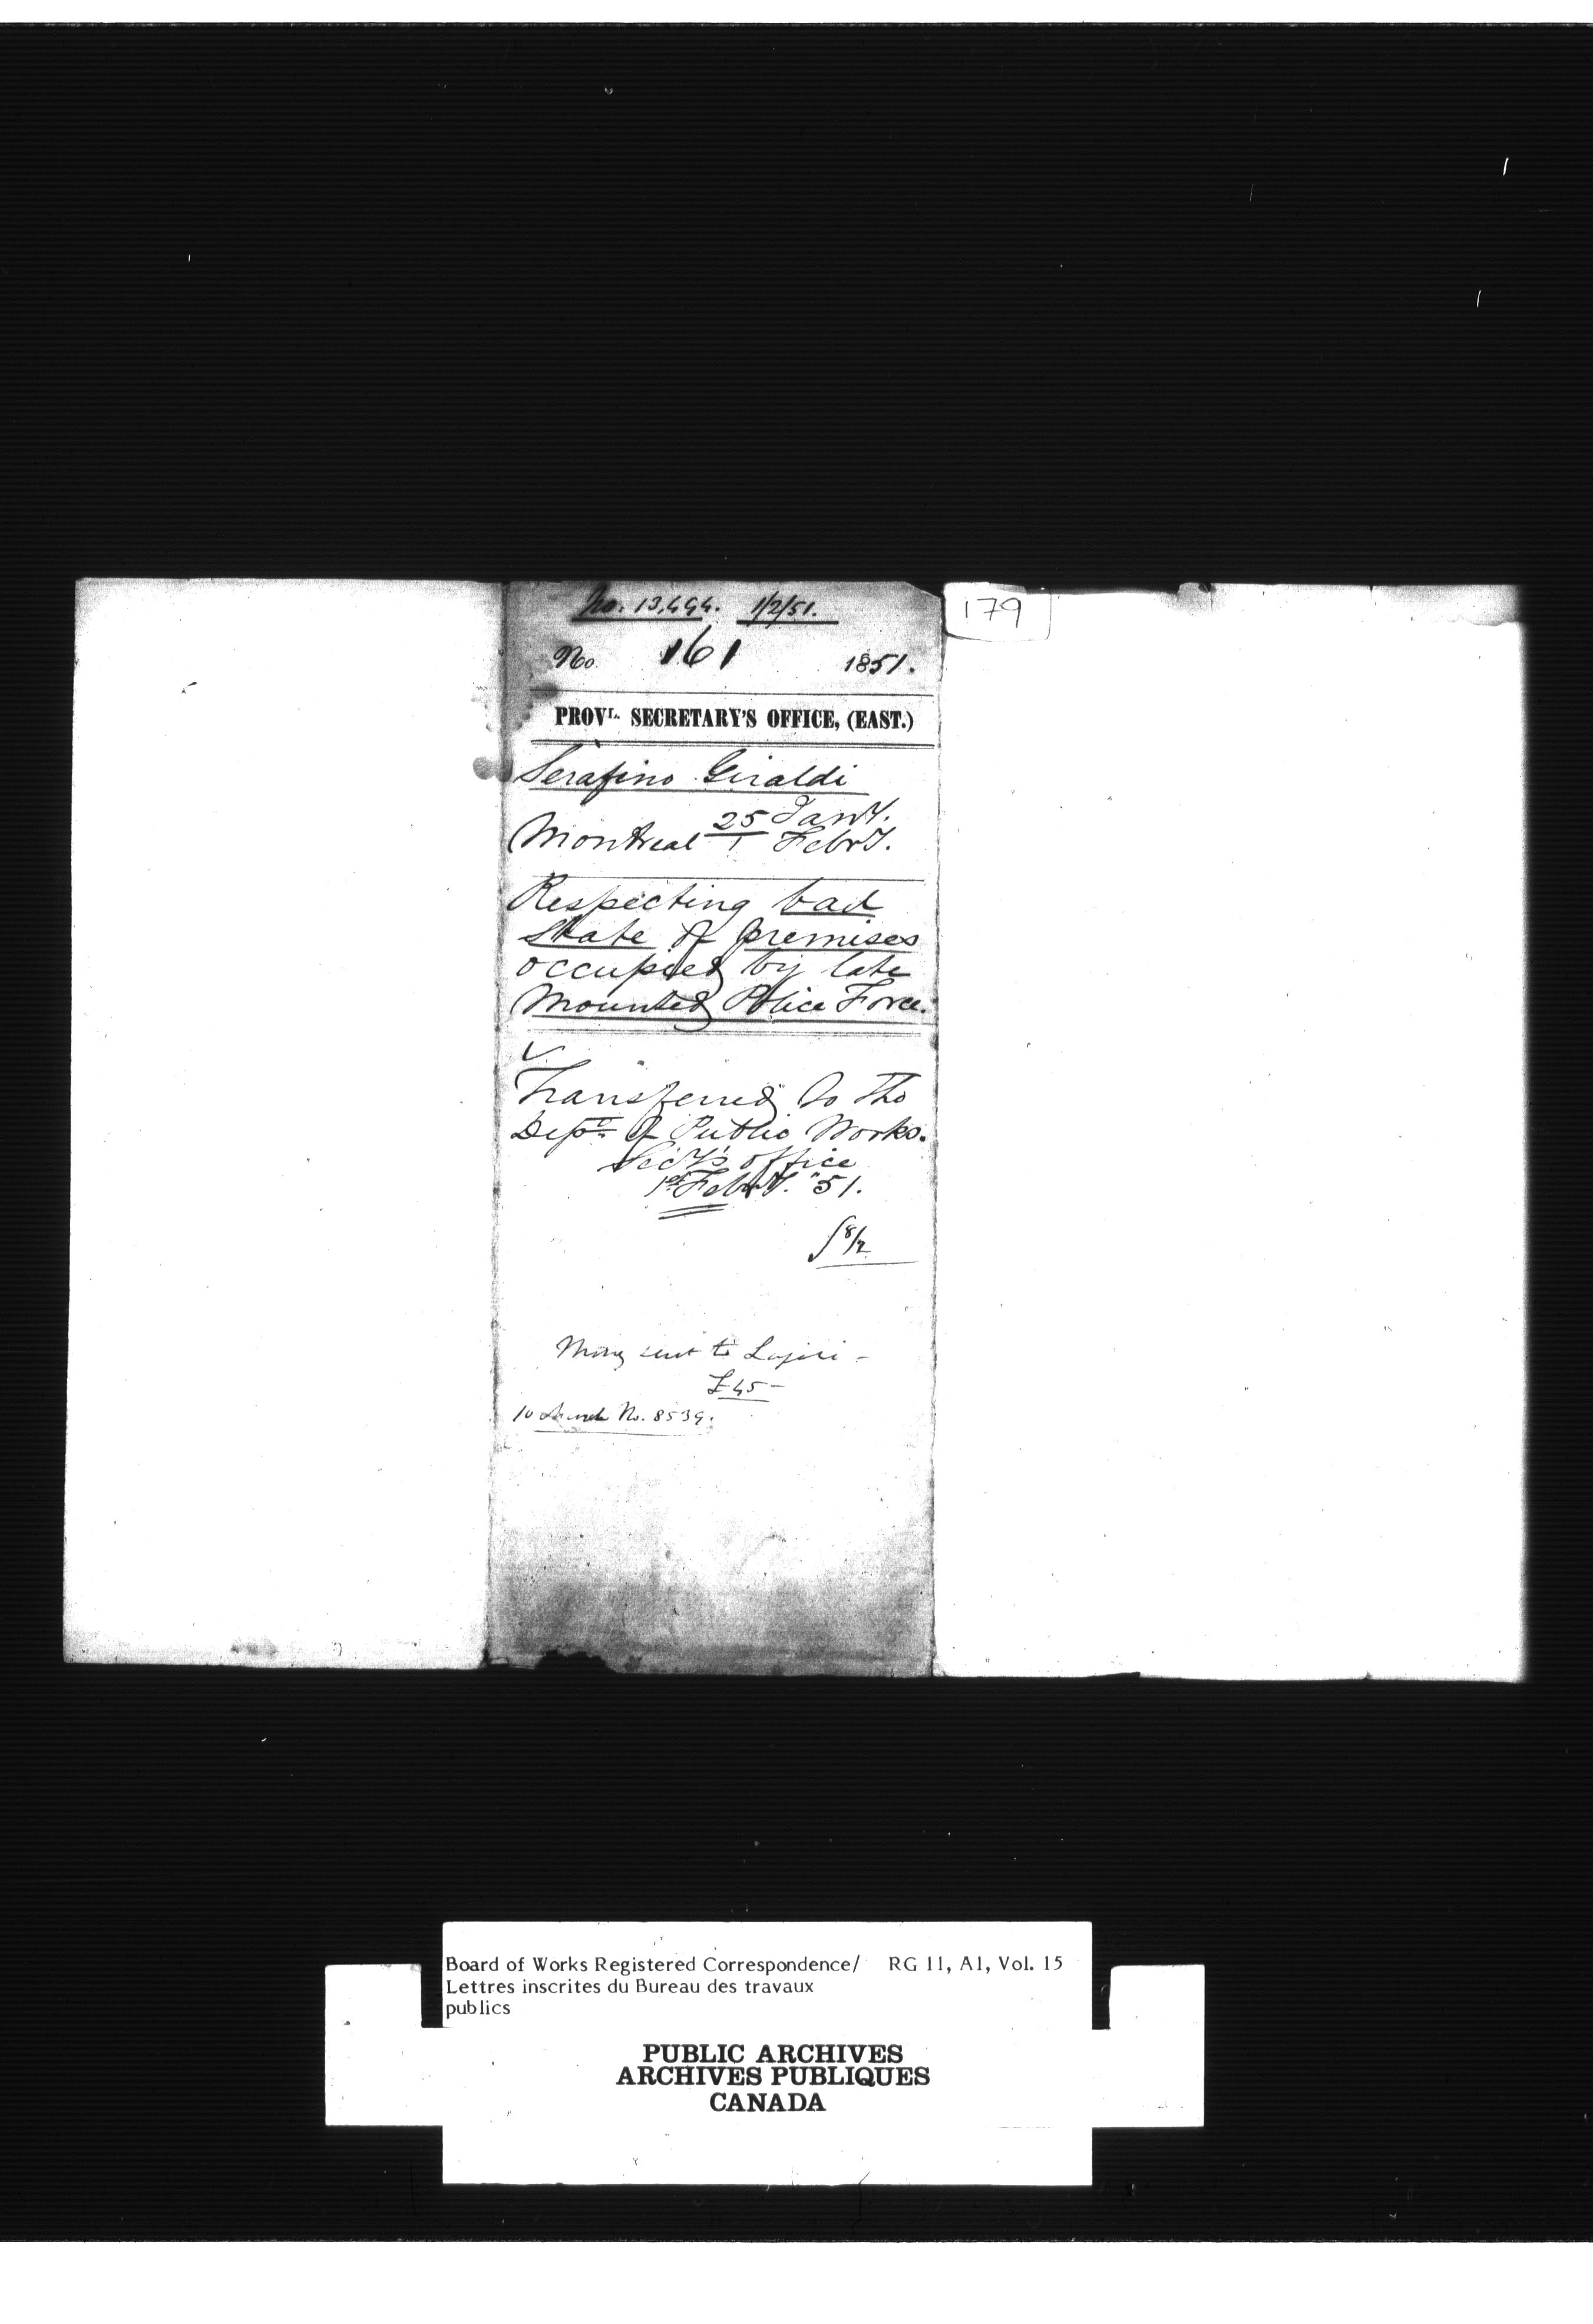 No. 13,494. 1/2/51.
179
No. 161 1851.
PROVL. SECRETARY'S OFFICE, (EAST.)
Serafino Giraldi
Montreal 25 Jany.
1 Febry.
Respecting bad
State of premises
occupied by late
Mounted Police Force.
Transferred to the
Dept. of Public Works.
Secy's office
1st Febry. "51.
8/2
Money sent to
£45-
No. 8539.
Board of Works Registered Correspondence/ RG 11, A1, Vol. 15
Lettres inscrites du Bureau des travaux
publics
PUBLIC ARCHIVES
ARCHIVES PUBLIQUES
CANADA